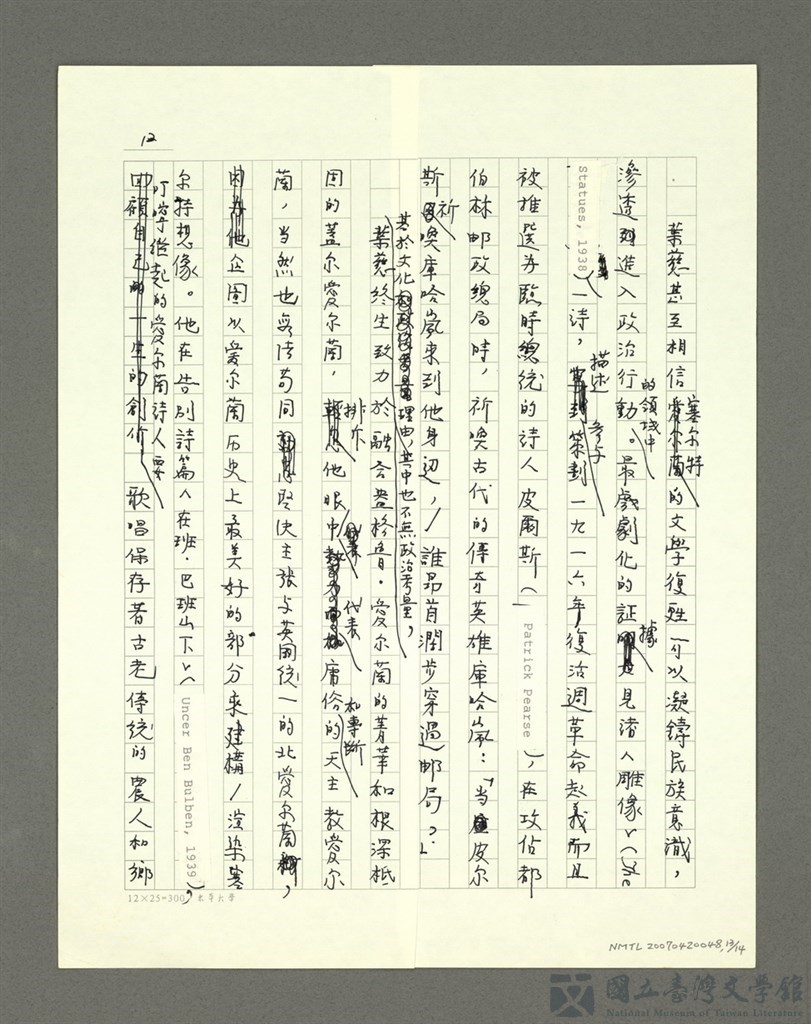 12
葉慈甚至相信塞尔特的文學復甦可以凝鑄民族意識，
滲透到進入政治行動的領域中。最戲劇化的証據是見諸〈雕像〉（The
Statues, 1938）一詩，描述參与策划一九一六年復活週革命起義而且
被推選為臨時總統的詩人皮爾斯（Patrick Pearse），在攻佔都
伯林邮政總局時，祈喚古代的傳奇英雄庫哈嵐：「当皮尔
斯祈喚庫哈嵐來到他身边，／誰昂首濶步穿過邮局？」
基於文化理由，其中也不無政治考量，
葉慈終生致力於融合盎格魯·愛尔蘭的菁華和根深柢
固的蓋尔愛尔蘭，排斥他眼中代表庸俗和專断的天主教愛尔
蘭，当然也無法苟同堅決主張与英国統一的北愛尔蘭，
他企圖以愛尔蘭历史上最美好的部分來建構／渲染塞
尔特想像。他在告别詩篇〈在班·巴班山下〉（Uncer Ben Bulben, 1939），
叮嚀繼起的愛尔蘭詩人要
歌唱保存著古老傳統的農人和鄉
12×25=300 東華大學
NMTL 20070420048, 13/14
國立臺灣文學館
National Museum of Taiwan Literature